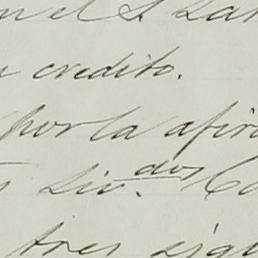 en el S. Lar
u credito.
por la afir
s Liv.dos Co
tres sigu